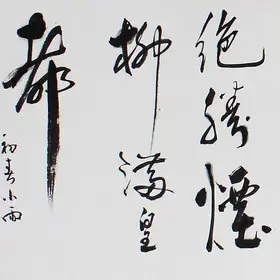 绝胜烟
柳满皇
都
初春小雨